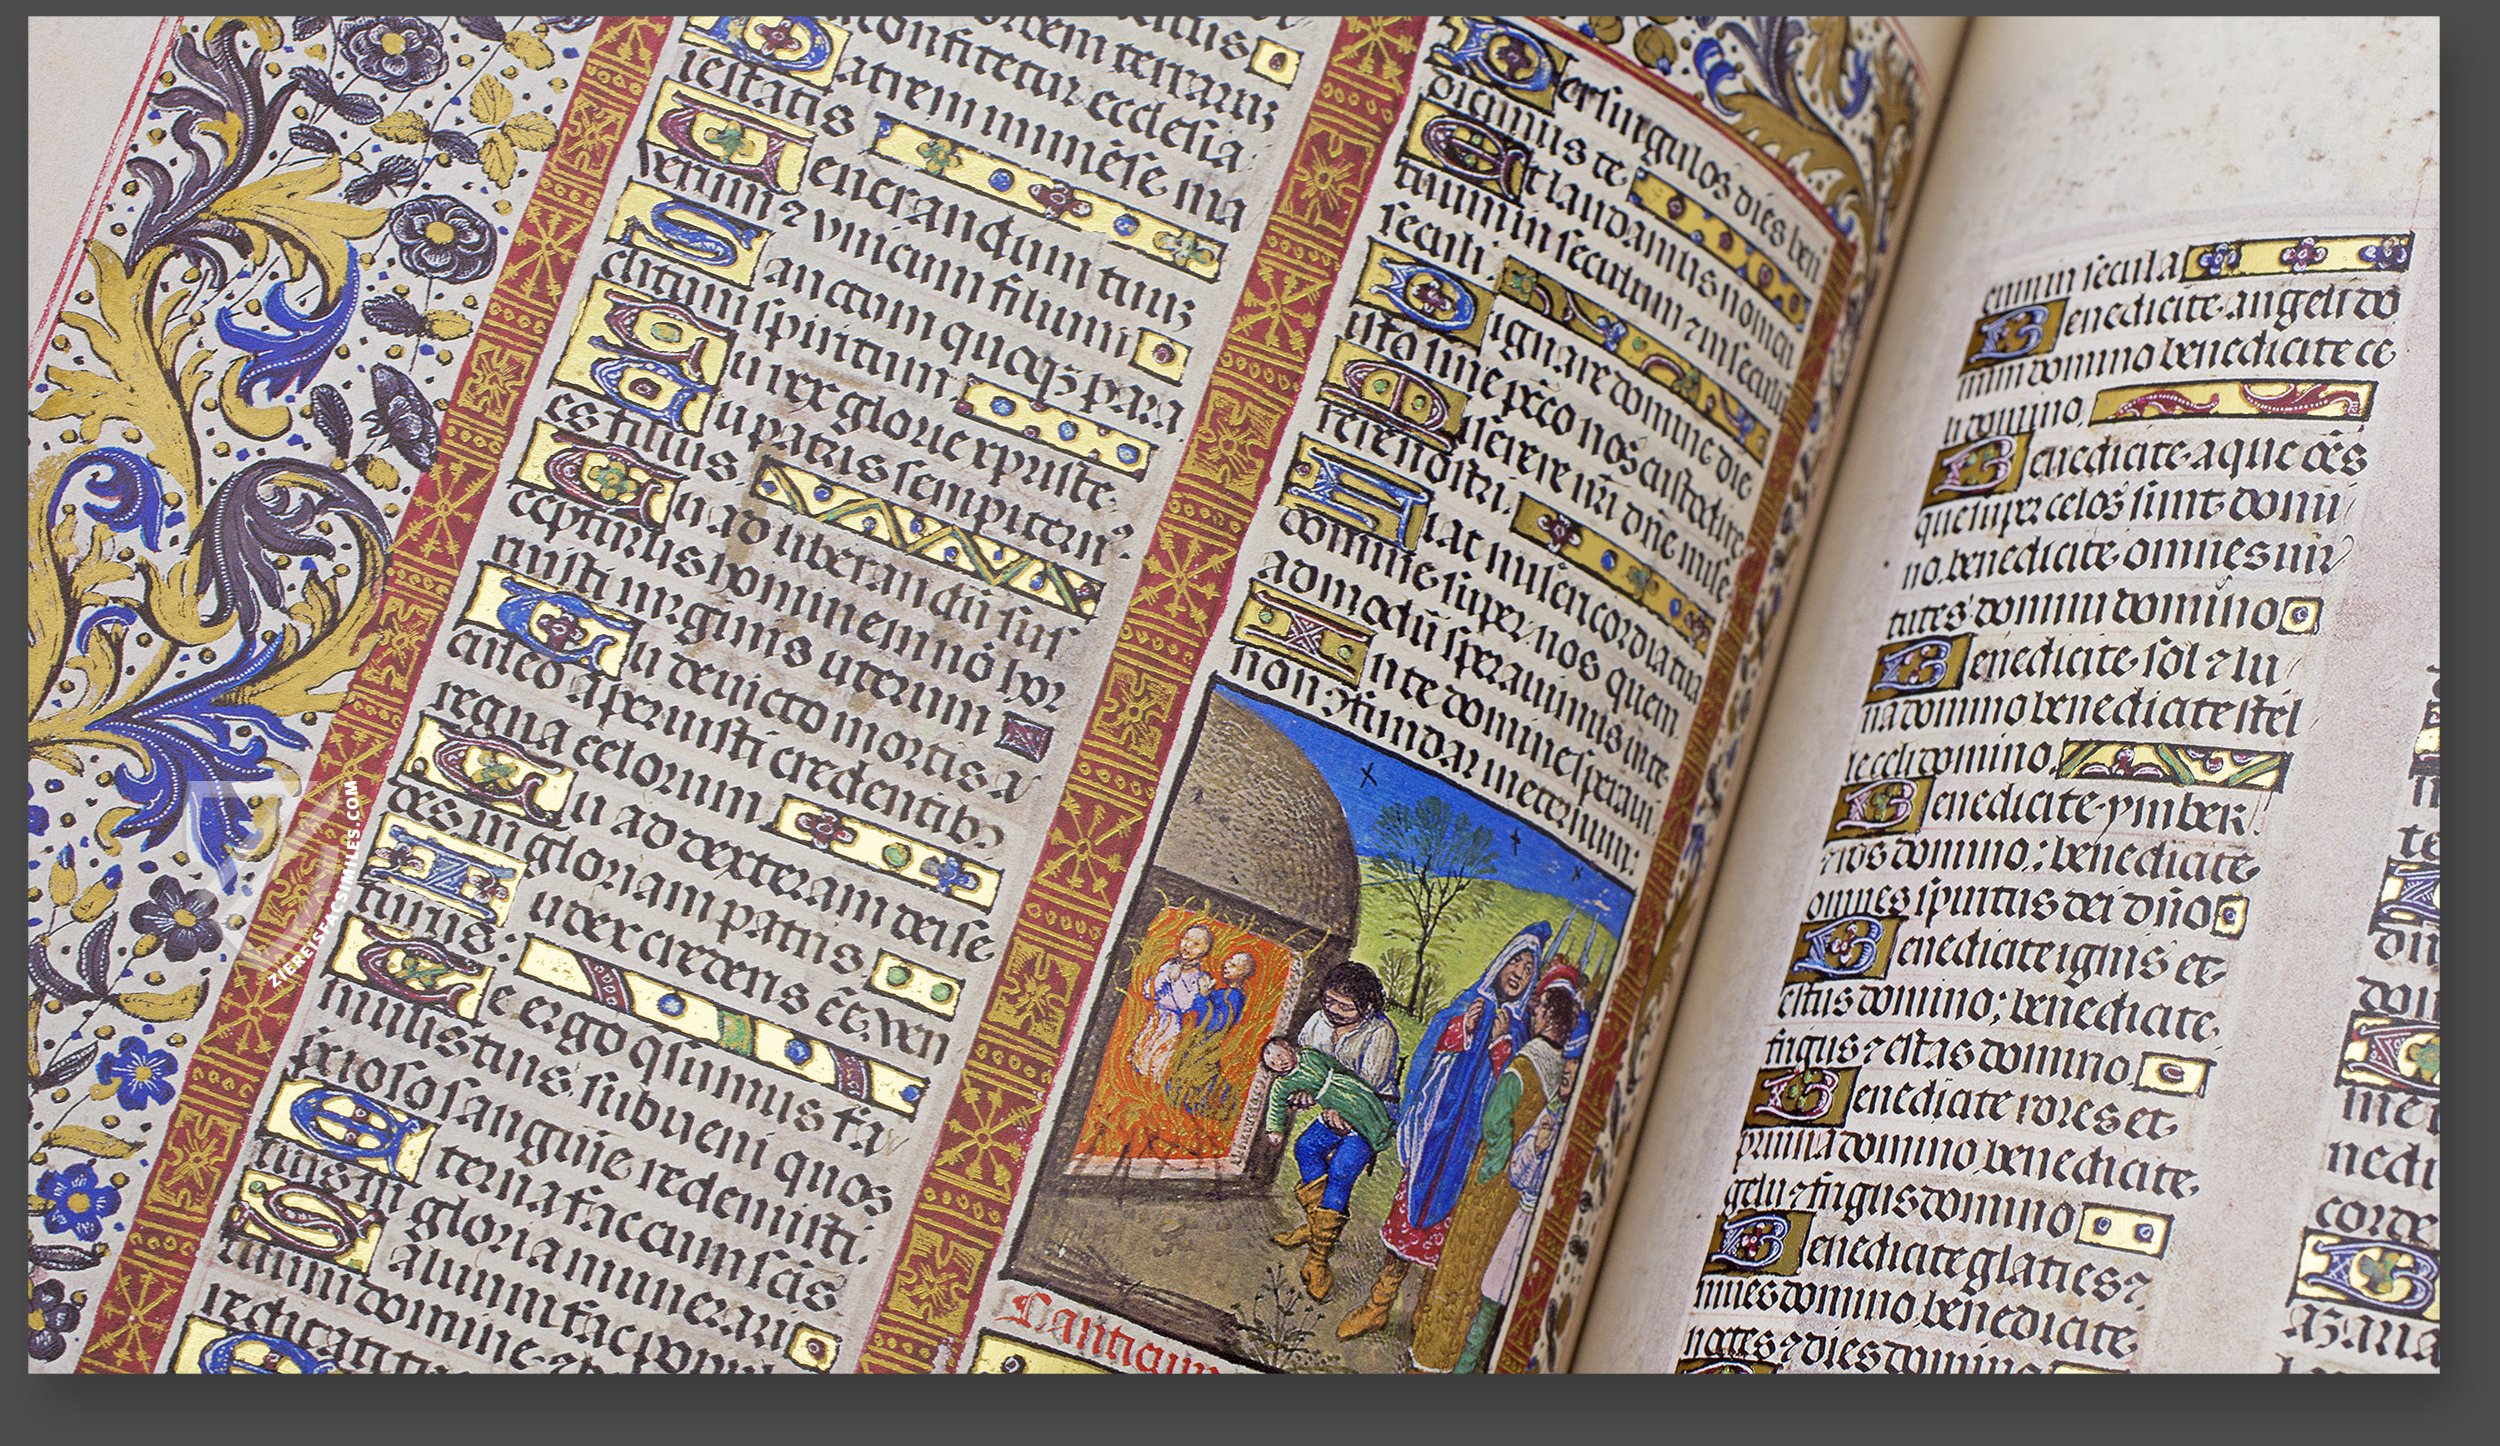 orbem terraru3
confitetur ecclesia.
Patrem inmēse ma
iestatis
Uenerandum tuu3
verum ⁊ vnicum filium
Sanctum quoq3 para
clitum spiritum.
Tu rex glorie xpriste.
Tu patris sempitern⁹
es filius.
Tu ad liberandū sus
cepturus hominem nō hor
ruisti uirginis uterum
Tu deuicto mortis a
culeo aperuisti credentib⁹
regna celorum
Tu ad dexteram dei se
des in gloriam patris
Iudex crederis ēē. ven
turus:
Te ergo qsumus fa
mulis tuis subueni quos
precioso sanguīe redemisti.
Eterna fac cum scīs
tuis in gloria munerari
Saluum fac popul
tuum domine ⁊ b
reditati tu
Per singulos dies ben
dicimus te.
Et laudamus nomen
tuum in seculum ⁊ in seculū
seculi.
Dignare domine die
isto sine pcco nos custodire
Miserere nri dnē mise
rere nostri.
Fiat misericordia tua
domine super nos quem
admodū sperauimus in te
In te domine speraui
non ↄfundar in eternum:
Canticum
eum in secula
Benedicite angeli do
mini domino benedicite ce
li domino.
Benedicite aque oēs
que super celos sunt domi
no. benedicite omnes uir
tutes domini domino
Benedicite sol ⁊ lu
na domino benedicite stel
le celi domino.
Benedicite ymber.
⁊ ros domino: benedicite
omnes spiritus dei dnō
Benedicite ignis et
estus domino; benedicite
frigus ⁊ estas domino.
Benedicite rores et
pruina domino benedicite
gelu ⁊ frigus domino
Benedicite glacies ⁊
niues domino. benedicite
noctes ⁊ dies domino
te
corde
B
azaria
ZIEREISFACSIMILES.COM